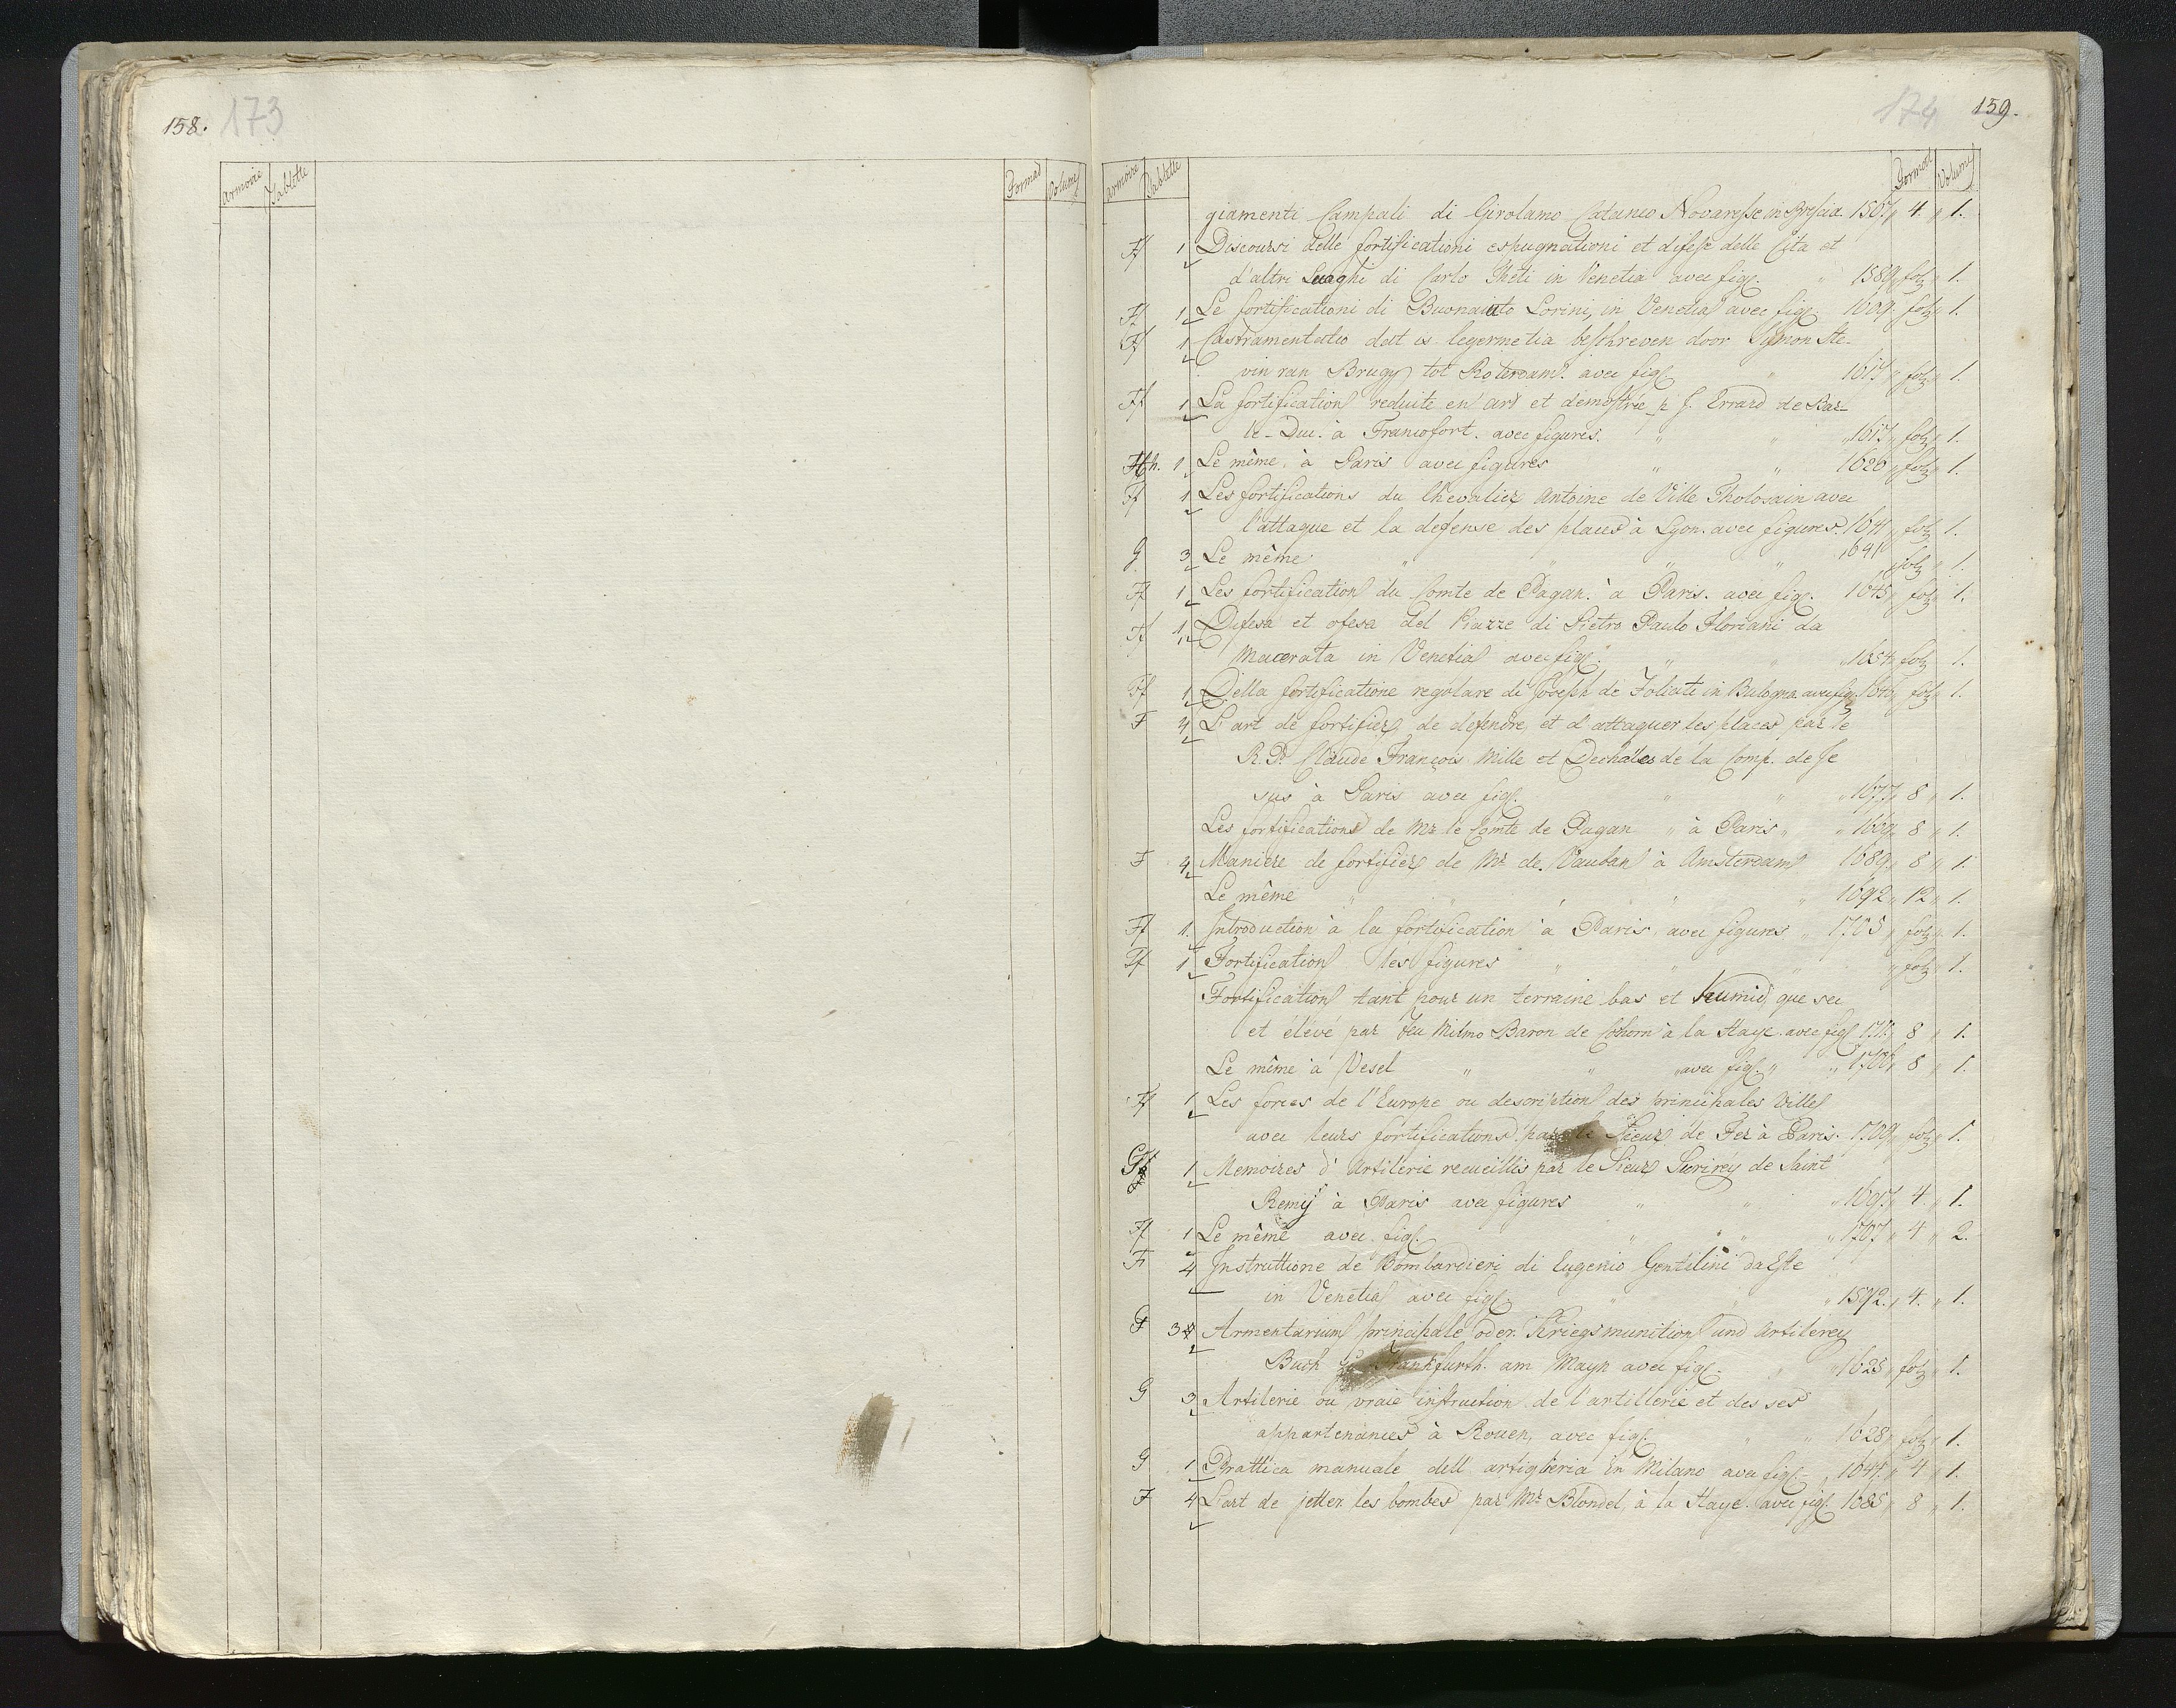 158. 173
armoire Tablette Format Volumes
174 159.
armoire Tablette Format Volumes
giamenti Campali di Girolamo Cataneo Novaresse in Brescia 1567 „ 4. „ 1.
Ff 1 Discoursi delle fortificationi espugnationi et difese delle Cita et
d'altri Luoghi di Carlo Theti in Venetia avec fig. „ 1589 „ fol „ 1.
Ff 1 Le fortificationi di Buonaiuto Lorini, in Venetia avec fig. 1609 fol „ 1.
Ff 1 Castrametatio dat is legermetia beschreven door Symon Ste-
vin van Brugy tot Roterdam. avec fig. „ 1617 „ fol „ 1.
Ff 1 La fortification reduite en art et demostrée p J. Errard de Bar-
le-Duc. à Francofort. avec figures. „ „ „ 1617 „ fol „ 1.
Hh. 1 Le même à Paris avec figures „ „ 1620 „ fol „ 1.
Ff 1 Les fortifications du Chevalier Antoine de Ville Tholosain avec
l'attaque et la defense des places à Lyon. avec figures. 1641 „ fol „ 1.
G 3 Le même „ „ „ „ 1641 „ fol „ 1.
Ff 1 Les fortification du Comte de Pagan. à Paris. avec fig. 1645 „ fol „ 1.
Ff 1 Difesa et ofesa del Piazze di Pietro Paulo Floriani da
Macerata in Venetia avec fig. „ „ „ 1654 „ fol 1.
Ff 1 Della fortificatione regolare di Joseph de Foliati in Bulogna avec fig. fol „ 1.
F 4 L'art de fortifier, de defendre et d'attaquer les places par le
R. P. Claude François Mille et Dechales de la Comp. de Je
sus à Paris avec fig. „ „ „ 1677 „ 8 „ 1.
Les fortifications de Mr le Comte de Pagan „ à Paris „ „ 1669 „ 8 „ 1.
F 4 Maniere de fortifier de Mr de Vauban à Amsterdam 1689 „ 8 „ 1.
Le même „ „ „ „ „ 1692 „ 12 „ 1.
Ff 1. Introduction à la fortification à Paris. avec figures „ 1705 „ fol „ 1.
Ff 1 Fortification les figures „ „ „ „ fol „ 1.
Fortification tant pour un terraine bas et humid, que sec
et élevé par feu Mr Baron de Cohorn à la Haye. avec fig. 1711 „ 8 „ 1.
Le même à Vesel „ „ „ avec fig. „ „ 1706 „ 8 „ 1.
Ff 1 Les forces de l'Europe ou description des principales Villes
avec leurs fortifications par le Sieur de Fer à Paris. 1709 „ fol „ 1.
1 Memoires d'Artilerie recueillis par le Sieur Surirey de Saint
Remij à Paris avec figures „ „ „ 1697 „ 4 „ 1.
Ff 1 Le même avec fig. „ „ „ „ 1707 „ 4 „ 2.
F 4 Instruttione de Bombardieri di Eugenio Gentilini da Este
in Venetia avec fig. „ „ „ 1592. „ 4. „ 1.
F 3 Armentarium principale oder Kriegsmunition und Artilerey
Buch zu Frankfurth. am Mayn avec fig. „ „ 1625 „ fol „ 1.
G 3 Artilerie ou vraie instruction de l'artillerie et des ses
appartenances à Rouen, avec fig. „ „ 1628 „ fol „ 1.
G 1 Prattica manuale dell' artiglieria in Milano avec fig. „ 1641 „ 4 „ 1.
F 4 L'art de jetter les bombes par Mr Blondel, à la Haye. avec fig. 1685 „ 8 „ 1.